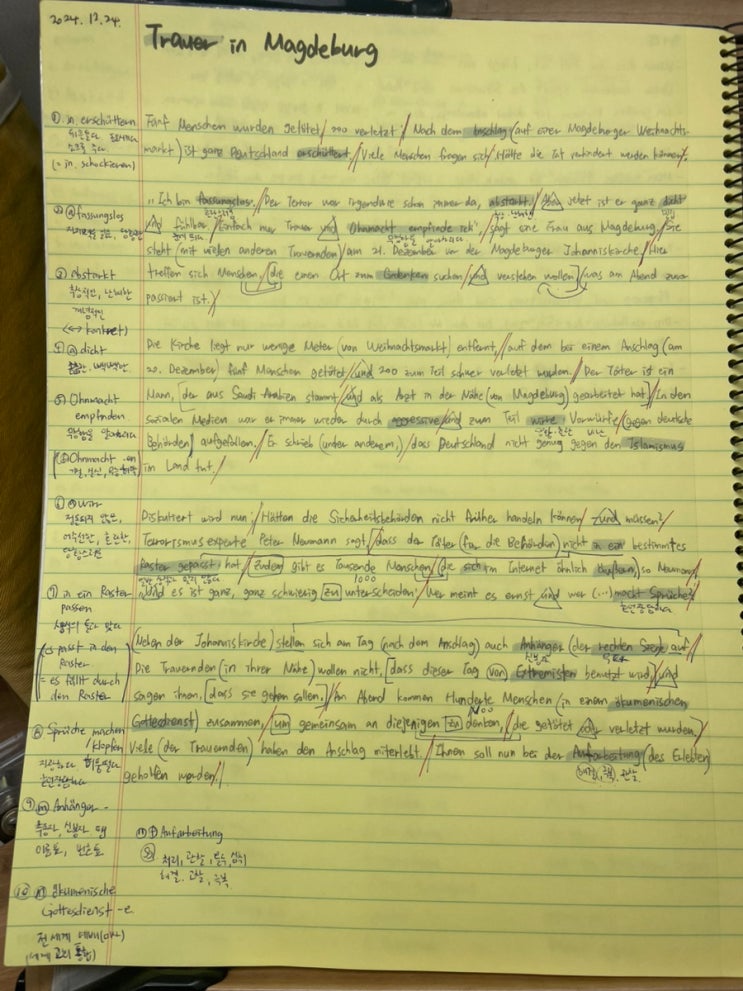 2024. 12. 24.
Trauer in Magdeburg
① in. erschüttern
뒤흔들다
소름 주다
(= in. schockieren)
Fünf Menschen wurden getötet / 200 verletzt / Nach dem Anschlag (auf einer Magdeburger Weihnachts-
markt) ist ganz Deutschland erschüttert / Viele Menschen fragen sich / Hätte die Tat verhindert werden können?
② ⓐ fassungslos
③ Abstrakt
추상적인, 난해한
개념적인
(↔ konkret)
„Ich bin fassungslos. / Der Terror war irgendwie schon immer da, abstrakt. / Aber jetzt ist er ganz dicht
und fühlbar. / Einfach nur Trauer und Ohnmacht empfinde ich", / sagt eine Frau aus Magdeburg. / Sie
steht (mit vielen anderen Trauernden) / am 21. Dezember vor der Magdeburger Johanniskirche. / Hier
treffen sich Menschen, [die einen Ort zum Gedenken suchen / und verstehen wollen] / was am Abend zuvor
passiert ist. /
④ ⓐ dicht
촘촘한, 빽빽한
⑤ Ohnmacht
empfinden
무력함을 느끼다
(⑤ Ohnmacht -en
Die Kirche liegt nur wenige Meter (von Weihnachtsmarkt) entfernt, / auf dem bei einem Anschlag (am
20. Dezember) fünf Menschen getötet / und 200 zum Teil schwer verletzt wurden. / Der Täter ist ein
Mann, [der aus Saudi Arabien stammt / und als Arzt in der Nähe (von Magdeburg) gearbeitet hat] / In den
sozialen Medien war er immer wieder durch aggressive und zum Teil wirre Vorwürfe / (gegen deutsche
Behörden) aufgefallen. / Er schrieb (unter anderem,) / dass Deutschland nicht genug gegen den Islamismus
im Land tut. /
⑥ ⓐ wirr
정돈되지 않은,
어수선한, 혼란한,
당황스러운
⑦ in ein Raster
passen
(es passt in den
Raster
= es fällt durch
den Raster
Diskutiert wird nun: / Hätten die Sicherheitsbehörden nicht früher handeln können / und müssen? /
Terrorismusexperte Peter Neumann sagt, / dass der Täter (für die Behörden) nicht in ein bestimmtes
Raster gepasst hat. / Zudem gibt es Tausende Menschen / (die sich im Internet ähnlich äußern), so Neumann /
1000
„Und es ist ganz, ganz schwierig zu unterscheiden: / Wer meint es ernst und wer (...) macht Sprüche?"
⑧ Sprüche machen
/ klopfen
(Neben der Johanniskirche) stellen sich am Tag (nach dem Anschlag) auch Anhänger (der rechten Szene) auf. /
Die Trauernden (in ihrer Nähe) wollen nicht, [dass dieser Tag von Extremisten benutzt wird] / und
sagen ihnen, [dass sie gehen sollen.] / Am Abend kommen Hunderte Menschen (in einem ökumenischen
100
Gottesdienst) zusammen, / um gemeinsam an diejenigen zu denken, / (die getötet oder verletzt wurden) /
Viele (der Trauernden) haben den Anschlag miterlebt. / Ihnen soll nun bei der Aufarbeitung (des Erlebten)
geholfen werden. /
⑨ ⓜ Anhänger -
추종자, 신봉자, 팬
⑩ ⓐ ökumenische
Gottesdienst -e
전 세계 예배(미사)
⑪ ⓕ Aufarbeitung
처리, 관찰
해결, 극복